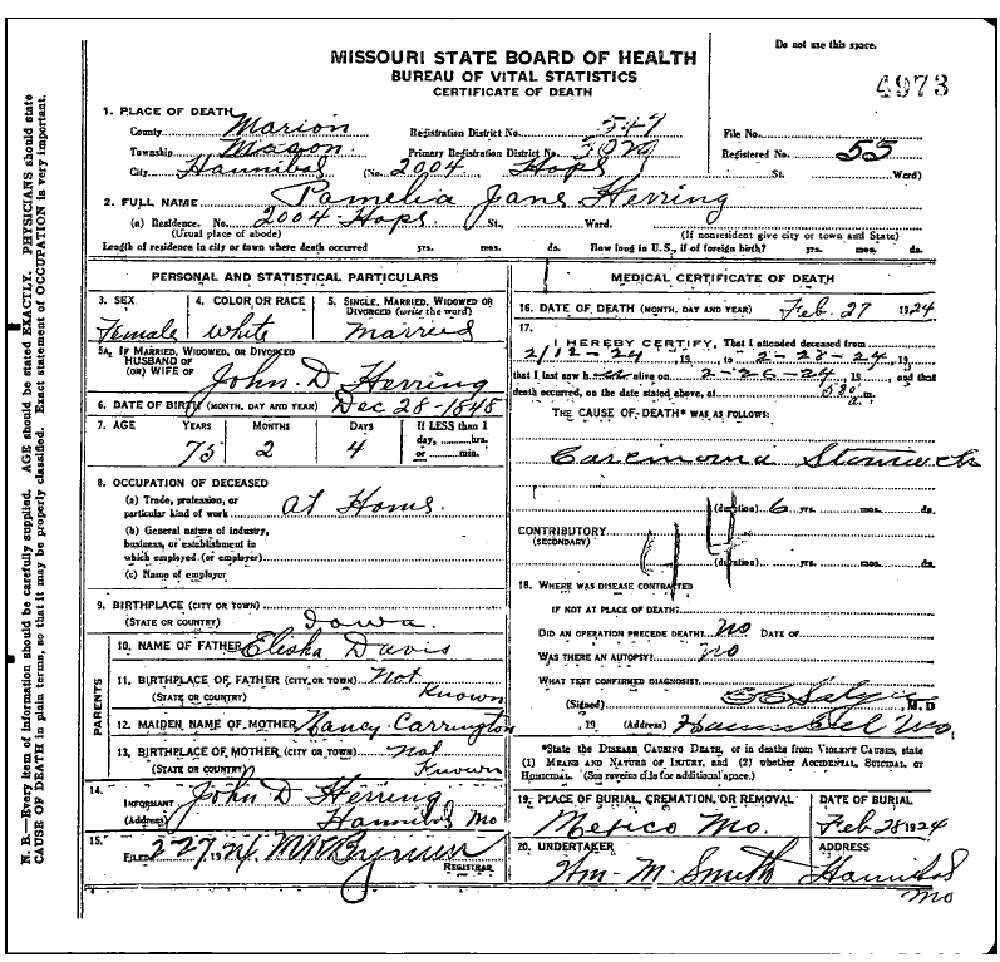 Do not use this space.
MISSOURI STATE BOARD OF HEALTH
BUREAU OF VITAL STATISTICS
CERTIFICATE OF DEATH
4973
1. PLACE OF DEATH
County Marion Registration District No. 547 File No.
Township Mason Primary Registration District No. Registered No. 55
City Hannibal (No. 2004 Hops St. Ward)
2. FULL NAME Pamelia Jane Herring
(a) Residence. No. 2004 Hops St., Ward.
(Usual place of abode) (If nonresident give city or town and State)
Length of residence in city or town where death occurred yrs. mos. ds. How long in U.S., if of foreign birth? yrs. mos. ds.
PERSONAL AND STATISTICAL PARTICULARS
3. SEX 4. COLOR OR RACE 5. SINGLE, MARRIED, WIDOWED OR DIVORCED (write the word)
Female White Married
5A. IF MARRIED, WIDOWED, OR DIVORCED
HUSBAND OF
(OR) WIFE OF John D Herring
6. DATE OF BIRTH (MONTH, DAY AND YEAR) Dec 28-1848
7. AGE YEARS MONTHS DAYS If LESS than 1
day, hrs.
75 2 4 or min.
8. OCCUPATION OF DECEASED
(a) Trade, profession, or
particular kind of work at Home.
(b) General nature of industry,
business, or establishment in
which employed (or employer)
(c) Name of employer
9. BIRTHPLACE (CITY OR TOWN)
(STATE OR COUNTRY) Iowa.
PARENTS
10. NAME OF FATHER Elisha Davis
11. BIRTHPLACE OF FATHER (CITY OR TOWN) Not
(STATE OR COUNTRY) Known
12. MAIDEN NAME OF MOTHER Nancy Carrington
13. BIRTHPLACE OF MOTHER (CITY OR TOWN) Not
(STATE OR COUNTRY) Known
14.
INFORMANT John D Herring
(Address) Hannibal Mo
15.
FILED 2 27 1924
REGISTRAR
MEDICAL CERTIFICATE OF DEATH
16. DATE OF DEATH (MONTH, DAY AND YEAR) Feb. 27 1924
17.
I HEREBY CERTIFY, That I attended deceased from
2/12-24, 19 , to 2-28-24, 19
that I last saw h alive on 2-26-24, 19 , and that
death occurred, on the date stated above, at a. m.
THE CAUSE OF DEATH* WAS AS FOLLOWS:
Carcinoma Stomach
(duration) 6 yrs. mos. ds.
CONTRIBUTORY
(SECONDARY)
44
(duration) yrs. mos. ds.
18. WHERE WAS DISEASE CONTRACTED
IF NOT AT PLACE OF DEATH?
DID AN OPERATION PRECEDE DEATH? No DATE OF
WAS THERE AN AUTOPSY? No
WHAT TEST CONFIRMED DIAGNOSIS?
(Signed) M. D
, 19 (Address) Hannibal Mo.
*State the DISEASE CAUSING DEATH, or in deaths from VIOLENT CAUSES, state
(1) MEANS AND NATURE OF INJURY, and (2) whether ACCIDENTAL, SUICIDAL, or
HOMICIDAL. (See reverse side for additional space.)
19. PLACE OF BURIAL, CREMATION, OR REMOVAL DATE OF BURIAL
Mexico Mo. Feb 28 1924
20. UNDERTAKER ADDRESS
Wm. M. Smith Hannibal
Mo
N. B.—Every item of information should be carefully supplied. AGE should be stated EXACTLY. PHYSICIANS should state
CAUSE OF DEATH in plain terms, so that it may be properly classified. Exact statement of OCCUPATION is very important.